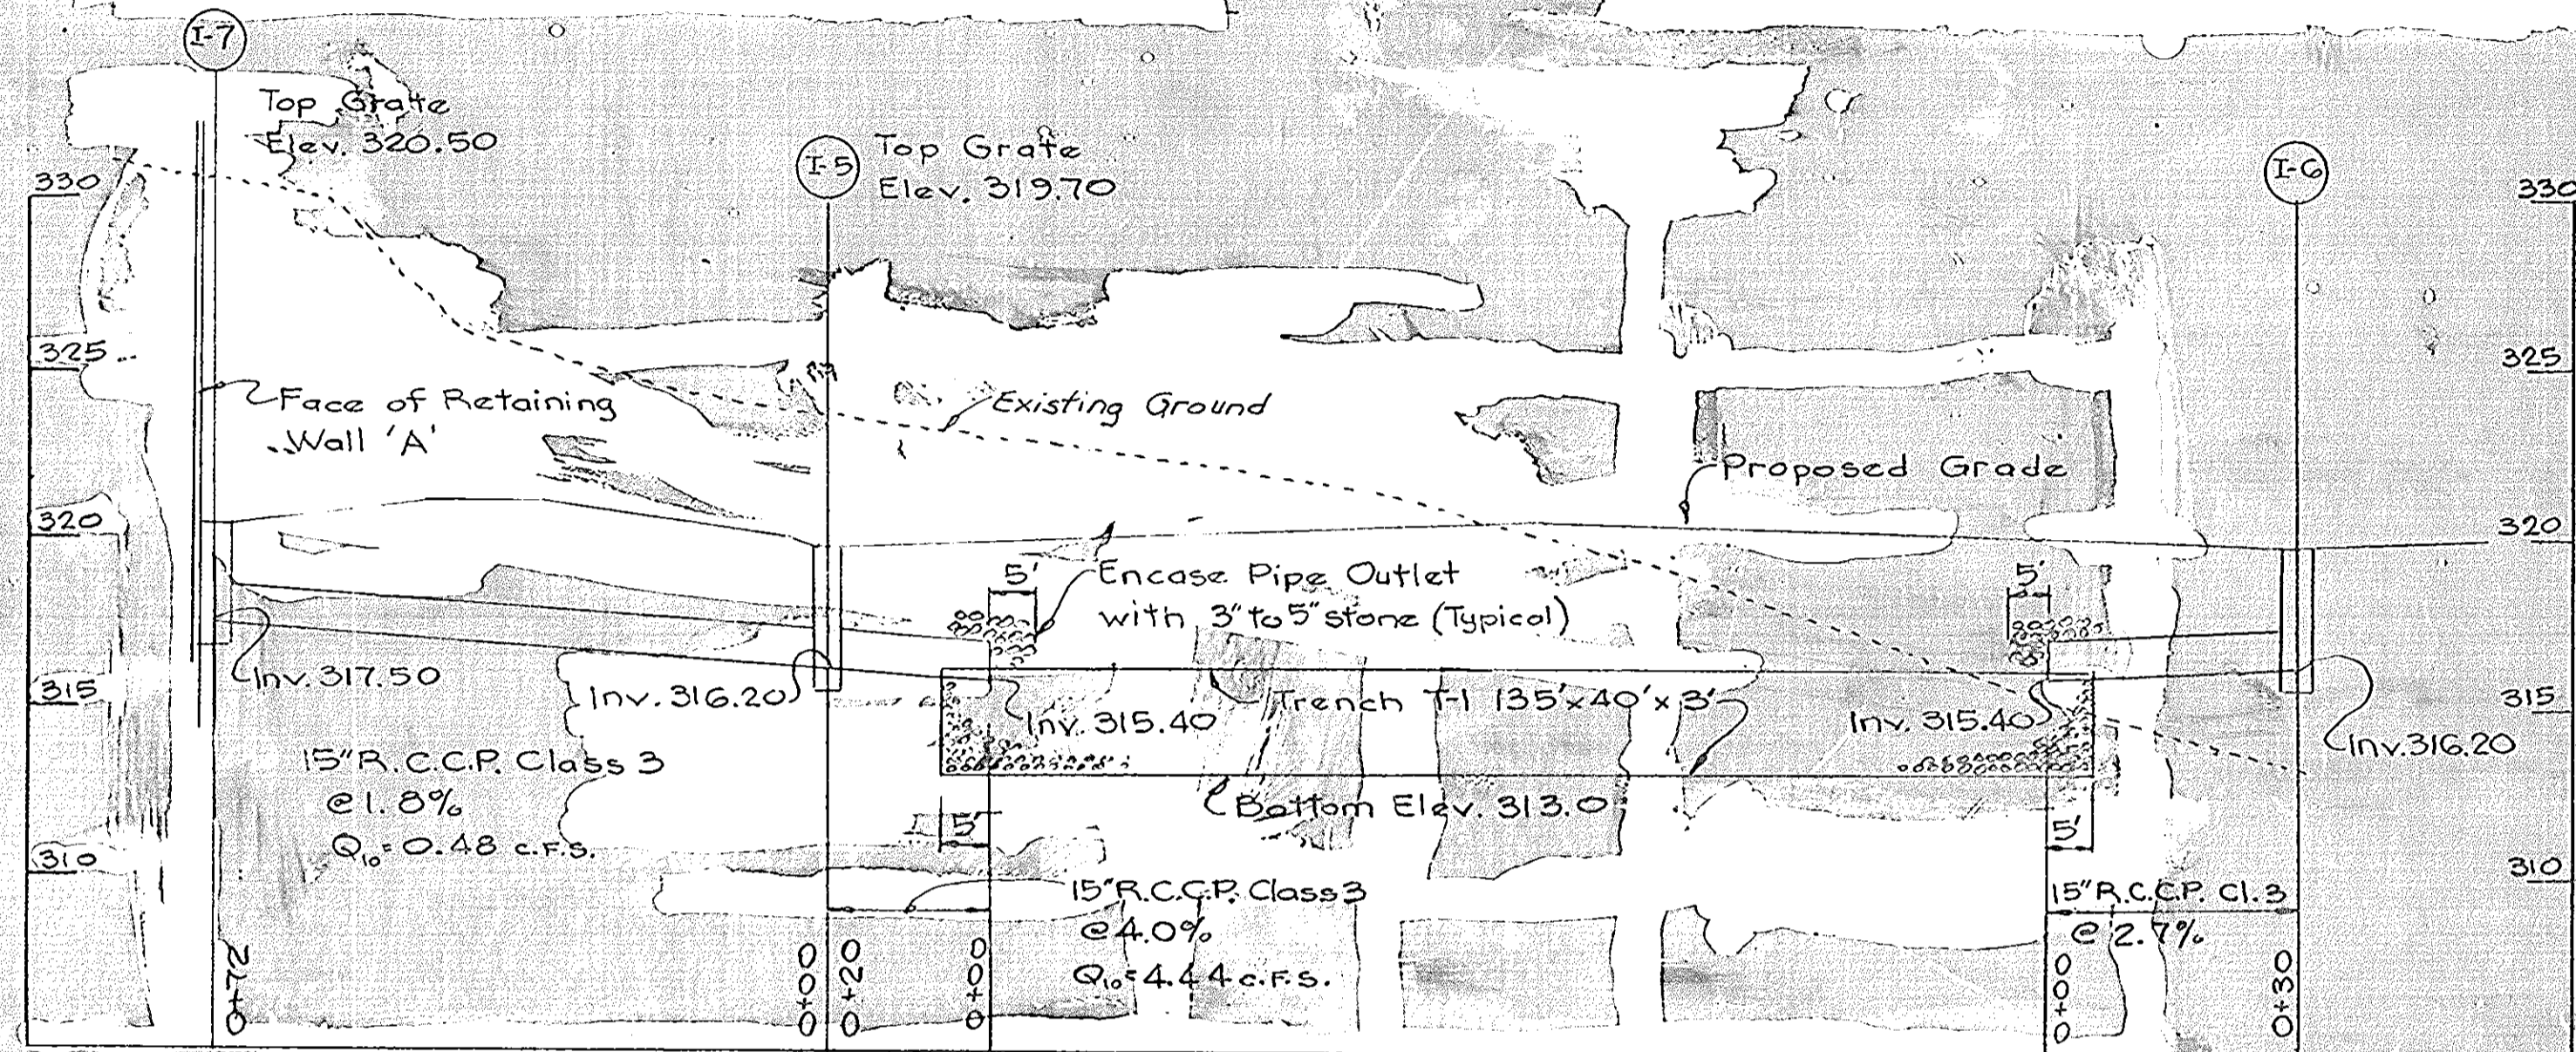 I-7
Top Grate
Elev. 320.50
I-5
Top Grate
Elev. 319.70
I-6
330
330
325
325
Face of Retaining
Wall 'A'
Existing Ground
Proposed Grade
320
320
5'
Encase Pipe Outlet
with 3" to 5" stone (Typical)
5'
315
315
Inv. 317.50
Inv. 316.20
Inv. 315.40
Trench T-1 135'x40'x3'
Inv. 315.40
Inv. 316.20
15" R.C.C.P. Class 3
@ 1.8%
Q10 = 0.48 c.f.s.
Bottom Elev. 313.0
5'
5'
310
310
15" R.C.C.P. Class 3
@ 4.0%
Q10 = 4.44 c.f.s.
15" R.C.C.P. Cl. 3
@ 2.7%
0+72
0+00
0+20
0+00
0+00
0+30